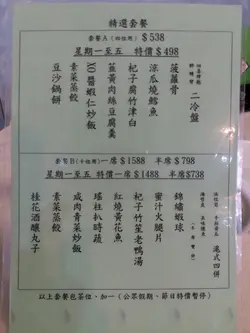 精選套餐
套餐A(四位用)$538
星期一至五 特價$498
二冷盤
菠蘿骨
涼瓜燒鱈魚
杞子腐竹津白
韮黃肉絲豆腐羹
XO醬蝦仁炒飯
素菜蒸餃
豆沙鍋餅
套餐B(十位用)一席$1588 半席$798
星期一至五 特價一席$1488 半席$738
滬式四併
錦繡蝦球
蜜汁火腿片
杞子竹笙老鴨湯
紅燒黃花魚
瑤柱扒時蔬
咸肉青菜炒飯
素菜蒸餃
桂花酒釀丸子
以上套餐包茶位、加一(公眾假期、節日特價暫停)